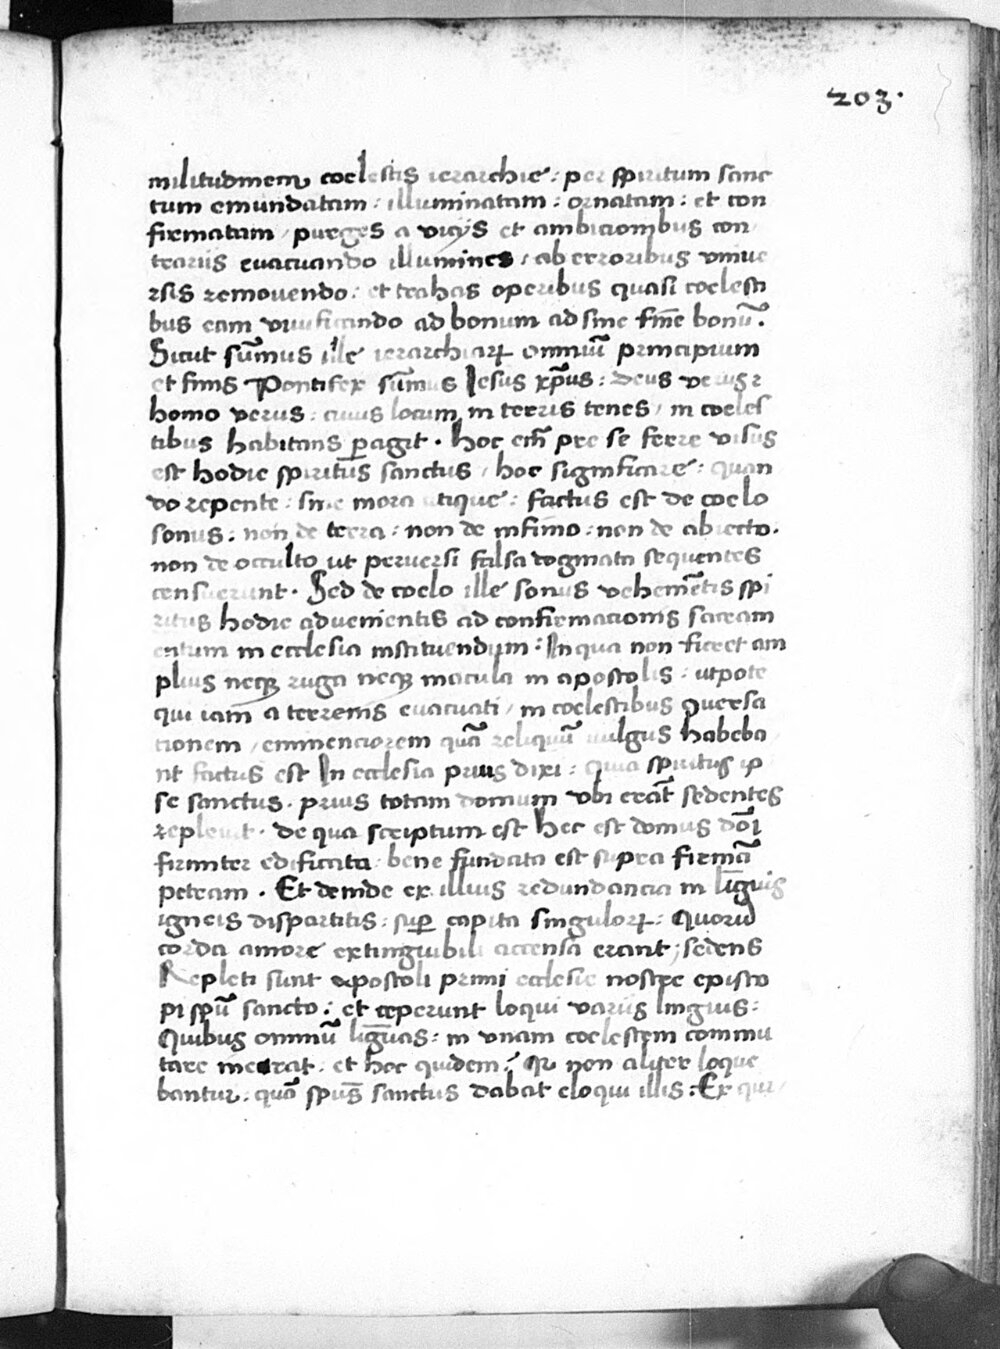 203.
militudinem coelestis ierarchie : per spiritum sanc
tum emundatam : illuminatam : ornatam : et con
firmatam / purges a vicijs et ambicionibus con
trariis evacuando illumines / ab erroribus univer
rsis removendo : et trahas operibus quasi coelesti
bus eam vivificando ad bonum ad sine fine bonū.
Sicut sūmus ille ierarchiarꝝ omniū principium
et finis Pontifex sūmus Iesus xp̄us : deus verus ⁊
homo verus : cuius locum in terris tenes / in coeles
tibus habitans ꝑagit . hoc em̄ pre se ferre visus
est hodie spiritus sanctus / hoc significare : quan
do repente : sine mora utique : factus est de coelo
sonus : non de terra : non de infimo : non de abiecto .
non de occulto ut perversi falsa dogmata sequentes
censuerunt . Sed de coelo ille sonus vehemētis spi
ritus hodie advenientis ad confirmacionis sacram
entum in ecclesia instituendum : In qua non ficret am
plius neqꝫ ruga neqꝫ macula in apostolis : utpote
qui iam a terrenis evacuati / in coelestibus ꝯversa
tionem / eminenciorem quā reliquū vulgus habeba
nt factus est In ecclesia prius dixi : quia spiritus ip
se sanctus . prius totam domum ubi erāt sedentes
replevit . de qua scriptum est hec est domus dōi
firmiter edificata : bene fundata est supra firmā
petram . Et deinde ex illius redundancia in līguis
igneis dispartitis : suꝑ capita singulorꝝ : Quorū
corda amore extinguibili accensa erant ; sedens
Repleti sunt apostoli primi ecclesie nostre episco
pi spū sancto : et ceperunt loqui variis linguis :
Quibus omniū līguas : in unam coelestem commu
tare et hoc quidem : Qꝛ non aliter loque
bantur : quā spūs sanctus dabat eloqui illis : Ex qui